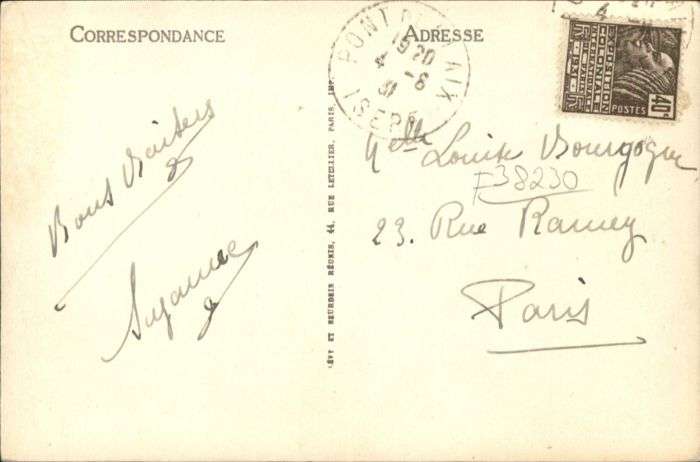 CORRESPONDANCE
ADRESSE
Bons Baisers
Suzanne
LÉVY ET NEURDEIN RÉUNIS, 44, RUE LETELLIER, PARIS, IMP.
PONT DE
19 20
4-8
31
ISERE
4
EXPOSITION
COLONIALE
INTERNATIONALE
PARIS 1931
POSTES
40c
Melle Louise Bourgogne
F38230
23. Rue Ramey
Paris